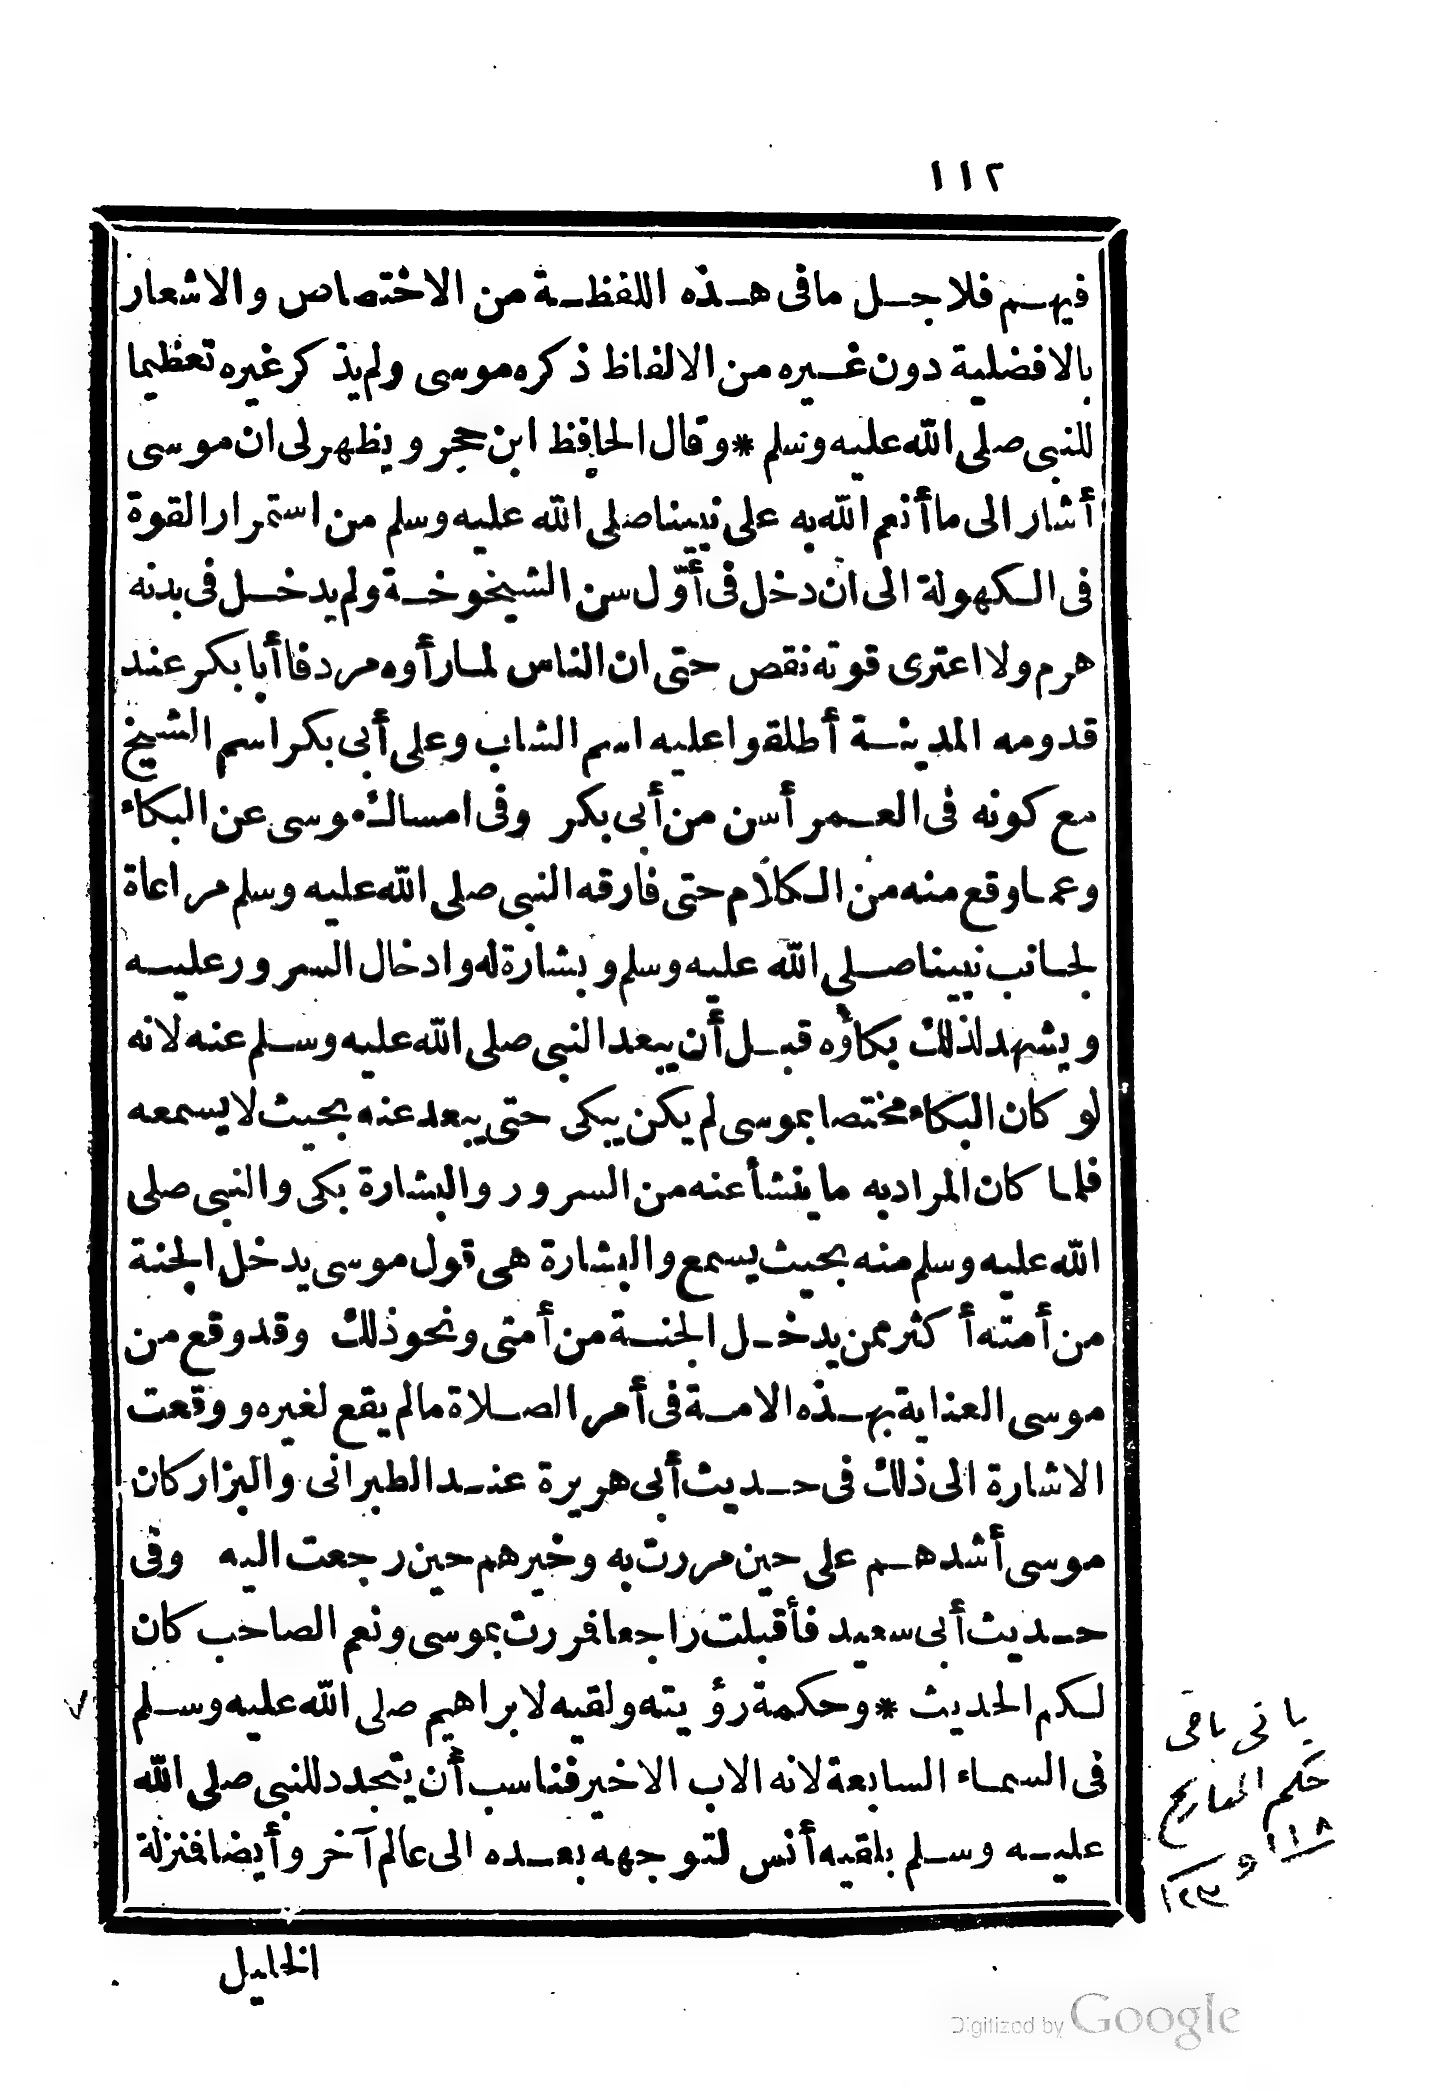 ١١٢
فيهم فلاجل مافى هذه اللفظة من الاختصاص والاشعار
بالافضلية دون غيره من الالفاظ ذكره موسى ولم يذكر غيره تعظيما
للنبى صلى الله عليه وسلم * وقال الحافظ ابن حجر ويظهر لى ان موسى
أشار الى ما أنعم الله به على نبينا صلى الله عليه وسلم من استمرار القوة
فى الكهولة الى ان دخل فى أوّل سن الشيخوخة ولم يدخل فى بدنه
هرم ولا اعترى قوته نقص حتى ان الناس لما رأوه مردفا أبا بكر عند
قدومه المدينة أطلقوا عليه اسم الشاب وعلى أبى بكر اسم الشيخ
مع كونه فى العمر أسن من أبى بكر وفى امساك موسى عن البكاء
وعما وقع منه من الكلام حتى فارقه النبى صلى الله عليه وسلم مراعاة
لجانب نبينا صلى الله عليه وسلم وبشارة له وادخال السرور عليه
ويشهد لذلك بكاؤه قبل أن يبعد النبى صلى الله عليه وسلم عنه لانه
لو كان البكاء مختصا بموسى لم يكن يبكى حتى يبعد عنه بحيث لا يسمعه
فلما كان المراد به ما ينشأ عنه من السرور والبشارة بكى والنبى صلى
الله عليه وسلم منه بحيث يسمع والبشارة هى قول موسى يدخل الجنة
من أمته أكثر ممن يدخل الجنة من أمتى ونحو ذلك وقد وقع من
موسى العناية بهذه الامة فى أمر الصلاة مالم يقع لغيره ووقعت
الاشارة الى ذلك فى حديث أبى هريرة عند الطبرانى والبزار كان
موسى أشدهم على حين مررت به وخيرهم حين رجعت اليه وفى
حديث أبى سعيد فأقبلت راجعا فمررت بموسى ونعم الصاحب كان
لكم الحديث * وحكمة رؤيته ولقيه لابراهيم صلى الله عليه وسلم
فى السماء السابعة لانه الاب الاخير فناسب أن يتجدد للنبى صلى الله
عليه وسلم بلقيه أنس لتوجهه بعده الى عالم آخر وأيضا فمنزلة
الخليل
باقى
حكم المعاريج
١١٨
و
١٢٣
Digitized by Google